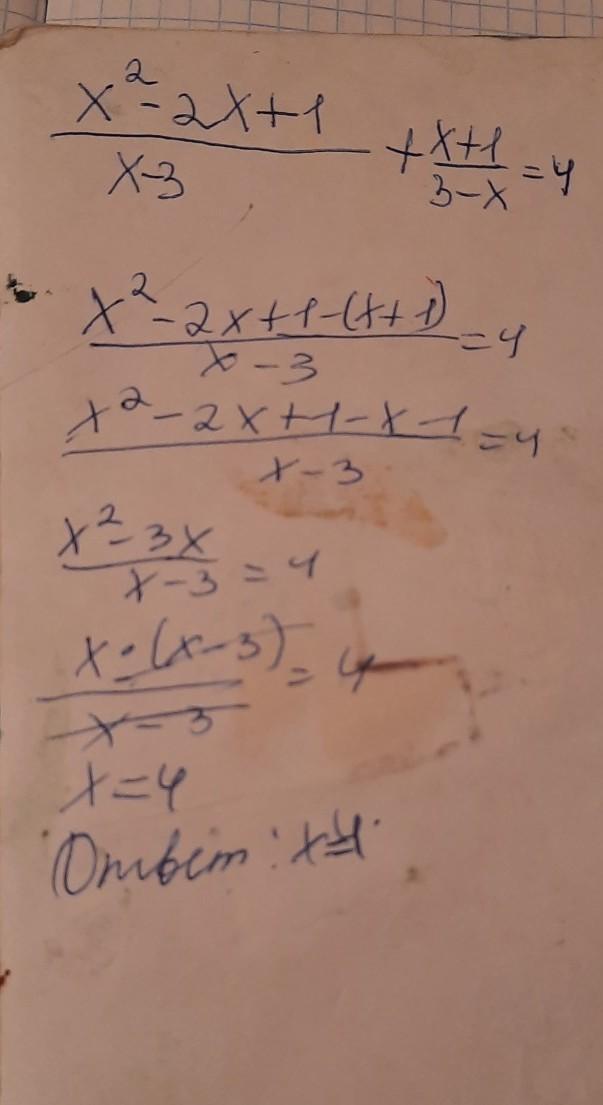 x² - 2x + 1 / x - 3 + x + 1 / 3 - x = 4
x² - 2x + 1 - (x + 1) / x - 3 = 4
x² - 2x + 1 - x - 1 / x - 3 = 4
x² - 3x / x - 3 = 4
x · (x - 3) / x - 3 = 4
x = 4
Ответ: x = 4.